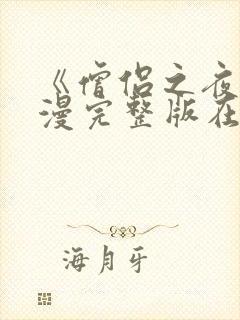 《僧侣之夜
漫完整版在
海月牙